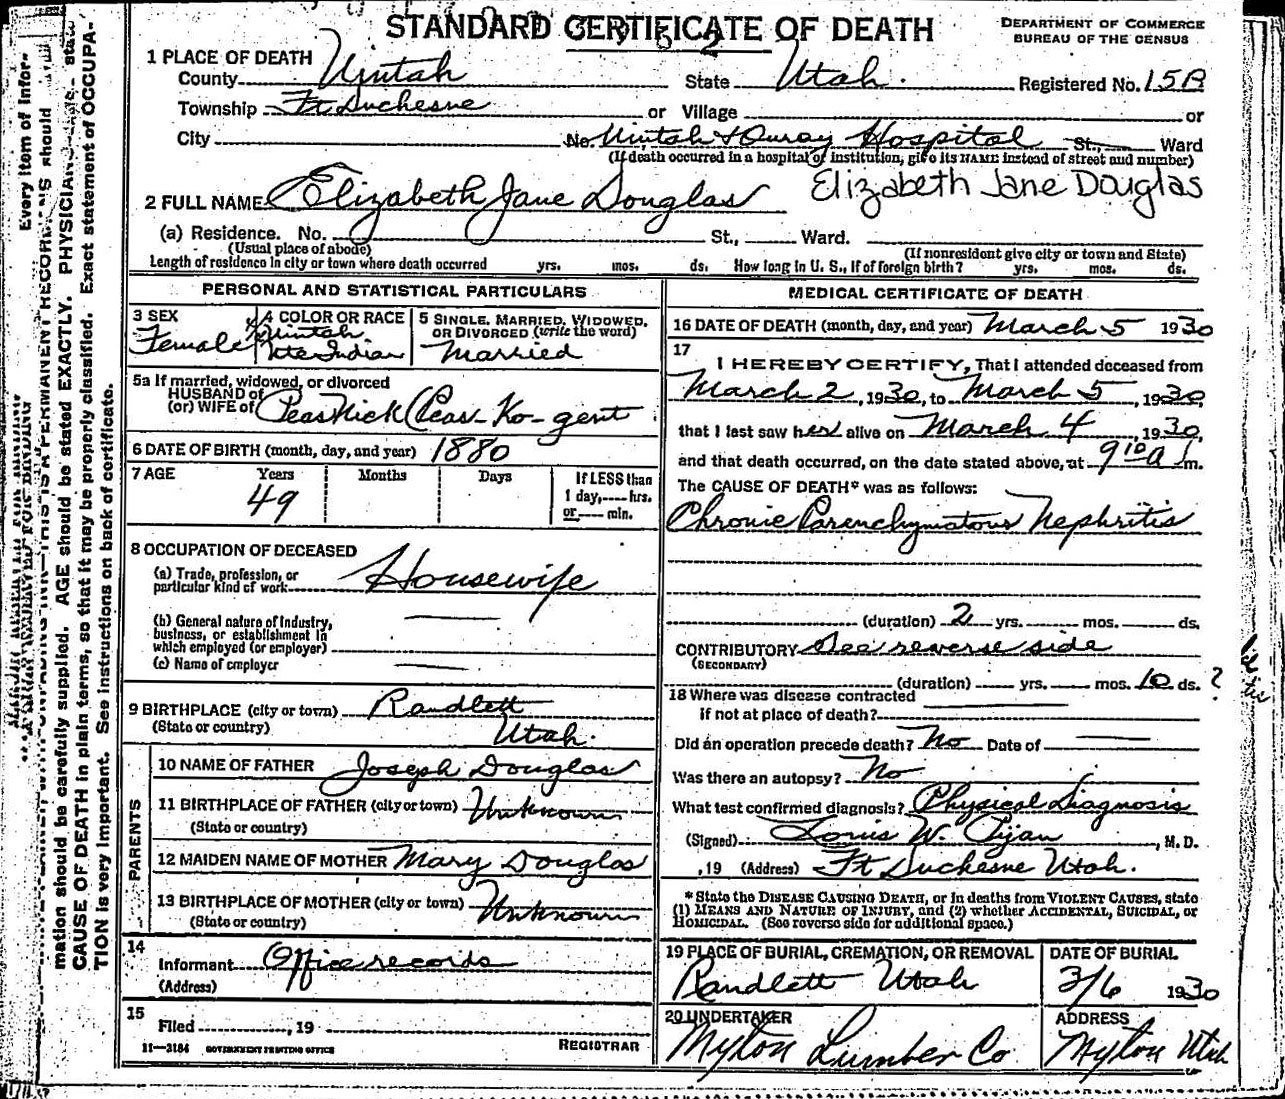 STANDARD CERTIFICATE OF DEATH
DEPARTMENT OF COMMERCE
BUREAU OF THE CENSUS
1 PLACE OF DEATH
County Uintah State Utah. Registered No. 15B
Township Ft Duchesne or Village or
City No. Uintah & Ouray Hospital St., Ward
(If death occurred in a hospital or institution, give its NAME instead of street and number)
2 FULL NAME Elizabeth Jane Douglas Elizabeth Jane Douglas
(a) Residence. No. St., Ward.
(Usual place of abode) (If nonresident give city or town and State)
Length of residence in city or town where death occurred yrs. mos. ds. How long in U. S., if of foreign birth? yrs. mos. ds.
PERSONAL AND STATISTICAL PARTICULARS
3 SEX
Female
4 COLOR OR RACE
Uintah
Ute Indian
5 SINGLE, MARRIED, WIDOWED,
OR DIVORCED (write the word)
Married
5a If married, widowed, or divorced
HUSBAND of
(or) WIFE of Peas Nick (Peas-Ko-gent
6 DATE OF BIRTH (month, day, and year) 1880
7 AGE Years Months Days If LESS than
1 day, hrs.
or min.
49
8 OCCUPATION OF DECEASED
(a) Trade, profession, or
particular kind of work Housewife
(b) General nature of industry,
business, or establishment in
which employed (or employer)
(c) Name of employer
9 BIRTHPLACE (city or town) Randlett
(State or country) Utah.
PARENTS
10 NAME OF FATHER Joseph Douglas
11 BIRTHPLACE OF FATHER (city or town) Unknown
(State or country)
12 MAIDEN NAME OF MOTHER Mary Douglas
13 BIRTHPLACE OF MOTHER (city or town) Unknown
(State or country)
14
Informant Office records
(Address)
15
Filed , 19
REGISTRAR
11—3184 GOVERNMENT PRINTING OFFICE
MEDICAL CERTIFICATE OF DEATH
16 DATE OF DEATH (month, day, and year) March 5 1930
17
I HEREBY CERTIFY, That I attended deceased from
March 2, 1930, to March 5, 1930,
that I last saw her alive on March 4, 1930,
and that death occurred, on the date stated above, at 9 10 a m.
The CAUSE OF DEATH* was as follows:
Chronic Parenchymatous Nephritis
(duration) 2 yrs. mos. ds.
CONTRIBUTORY See reverse side
(SECONDARY)
(duration) yrs. mos. 10 ds. ?
18 Where was disease contracted
if not at place of death?
Did an operation precede death? No Date of
Was there an autopsy? No
What test confirmed diagnosis? Physical Diagnosis
(Signed) Louis W. Pijan, M. D.
, 19 (Address) Ft Duchesne Utah.
* State the DISEASE CAUSING DEATH, or in deaths from VIOLENT CAUSES, state
(1) MEANS AND NATURE OF INJURY, and (2) whether ACCIDENTAL, SUICIDAL, or
HOMICIDAL. (See reverse side for additional space.)
19 PLACE OF BURIAL, CREMATION, OR REMOVAL
Randlett Utah
DATE OF BURIAL
3/6 1930
20 UNDERTAKER
Myton Lumber Co
ADDRESS
Myton Utah
Every item of infor-
mation should be carefully supplied. AGE should be stated EXACTLY. PHYSICIANS should state
CAUSE OF DEATH in plain terms, so that it may be properly classified. Exact statement of OCCUPA-
TION is very important. See instructions on back of certificate.